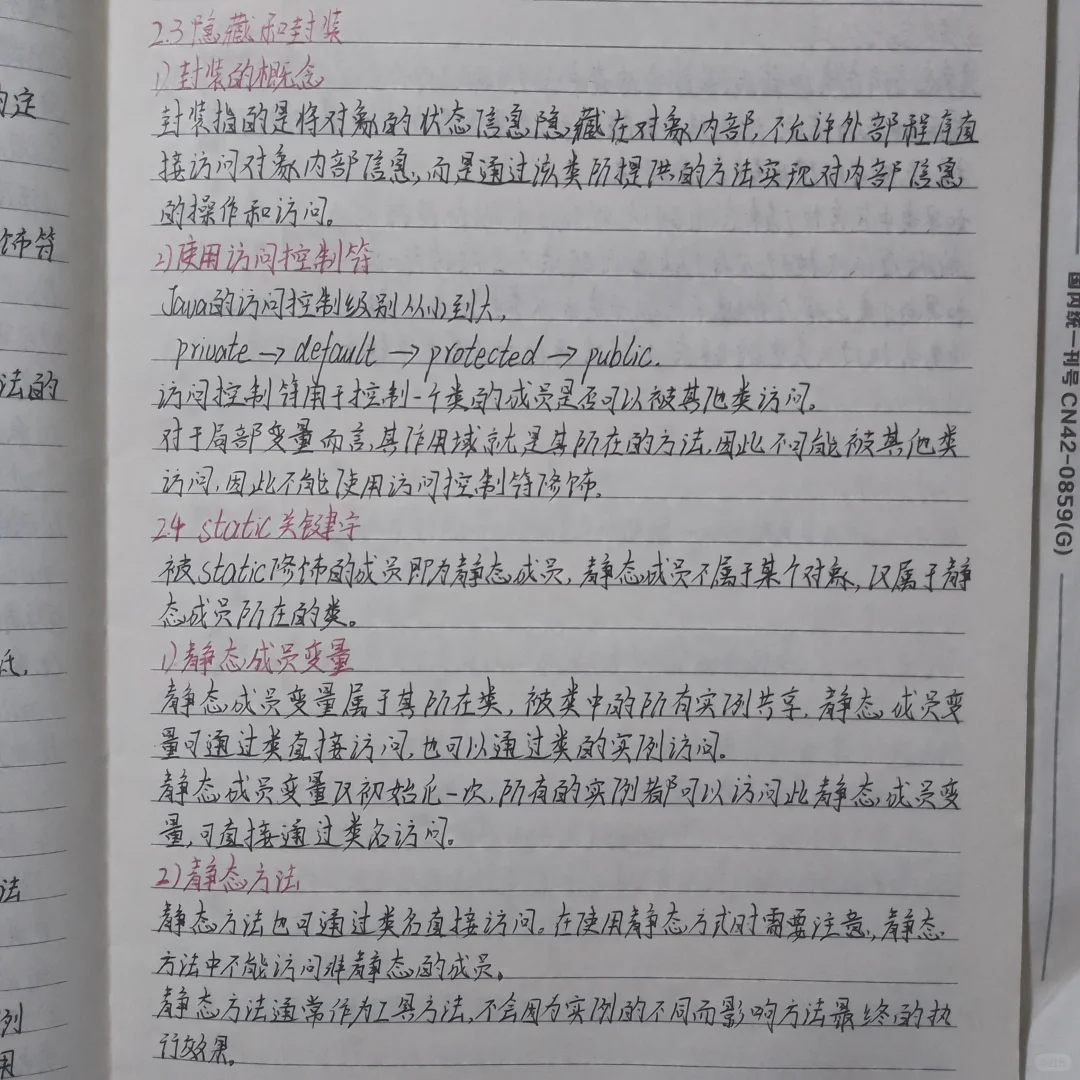 2.3 隐藏和封装
1) 封装的概念
封装指的是将对象的状态信息隐藏在对象内部,不允许外部程序直
接访问对象内部信息,而是通过该类所提供的方法实现对内部信息
的操作和访问。
2) 使用访问控制符
Java的访问控制级别从小到大,
private → default → protected → public.
访问控制符用于控制一个类的成员是否可以被其他类访问。
对于局部变量而言,其作用域就是其所在的方法,因此不可能被其他类
访问,因此不能使用访问控制符修饰。
2.4 static关键字
被static修饰的成员即为静态成员,静态成员不属于某个对象,仅属于静
态成员所在的类。
1) 静态成员变量
静态成员变量属于其所在类,被类中的所有实例共享,静态成员变
量可通过类直接访问,也可以通过类的实例访问。
静态成员变量仅初始化一次,所有的实例都可以访问此静态成员变
量,可直接通过类名访问。
2) 静态方法
静态方法也可通过类名直接访问。在使用静态方式时需要注意,静态
方法中不能访问非静态的成员。
静态方法通常作为工具方法,不会因为实例的不同而影响方法最终的执
行效果。
的定
饰符
法的
法
例
用
国内统一刊号CN42-0859(G)